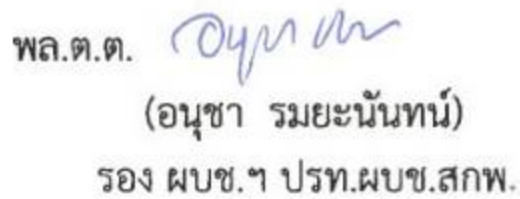 พล.ต.ต.
(อนุชา รมยะนันทน์)
รอง ผบช.ฯ ปรท.ผบช.สกพ.